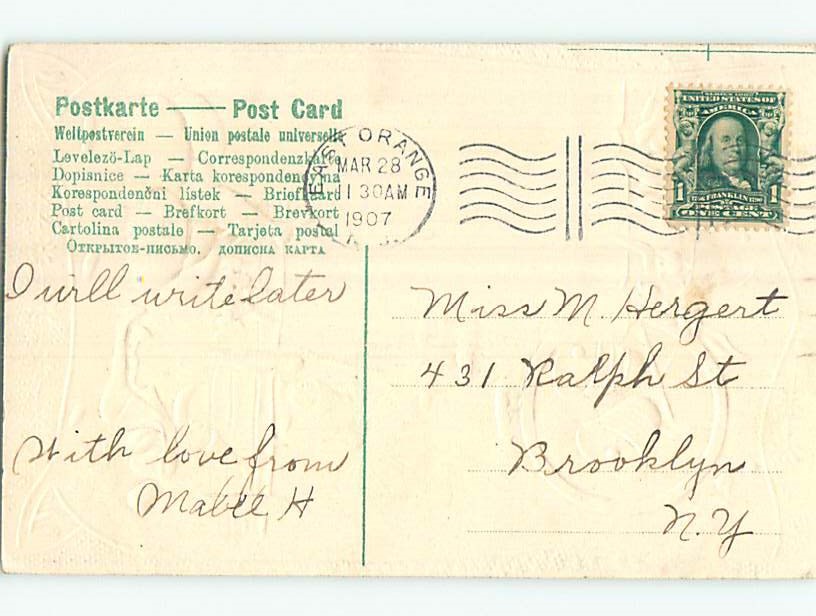 Postkarte — Post Card
Weltpostverein — Union postale universelle
Levelezö-Lap — Correspondenzkarte
Dopisnice — Karta korespondencyjna
Korespondenční lístek — Briefkaard
Post card — Brefkort — Brevkort
Cartolina postale — Tarjeta postal
Открытое-письмо. дописна карта
EAST ORANGE
MAR 28
1 30AM
1907
N.J.
UNITED STATES OF
AMERICA
1 FRANKLIN 1
ONE CENT
I will write later
With love from
Mabel H
Miss M. Hergert
431 Ralph St
Brooklyn
N.Y